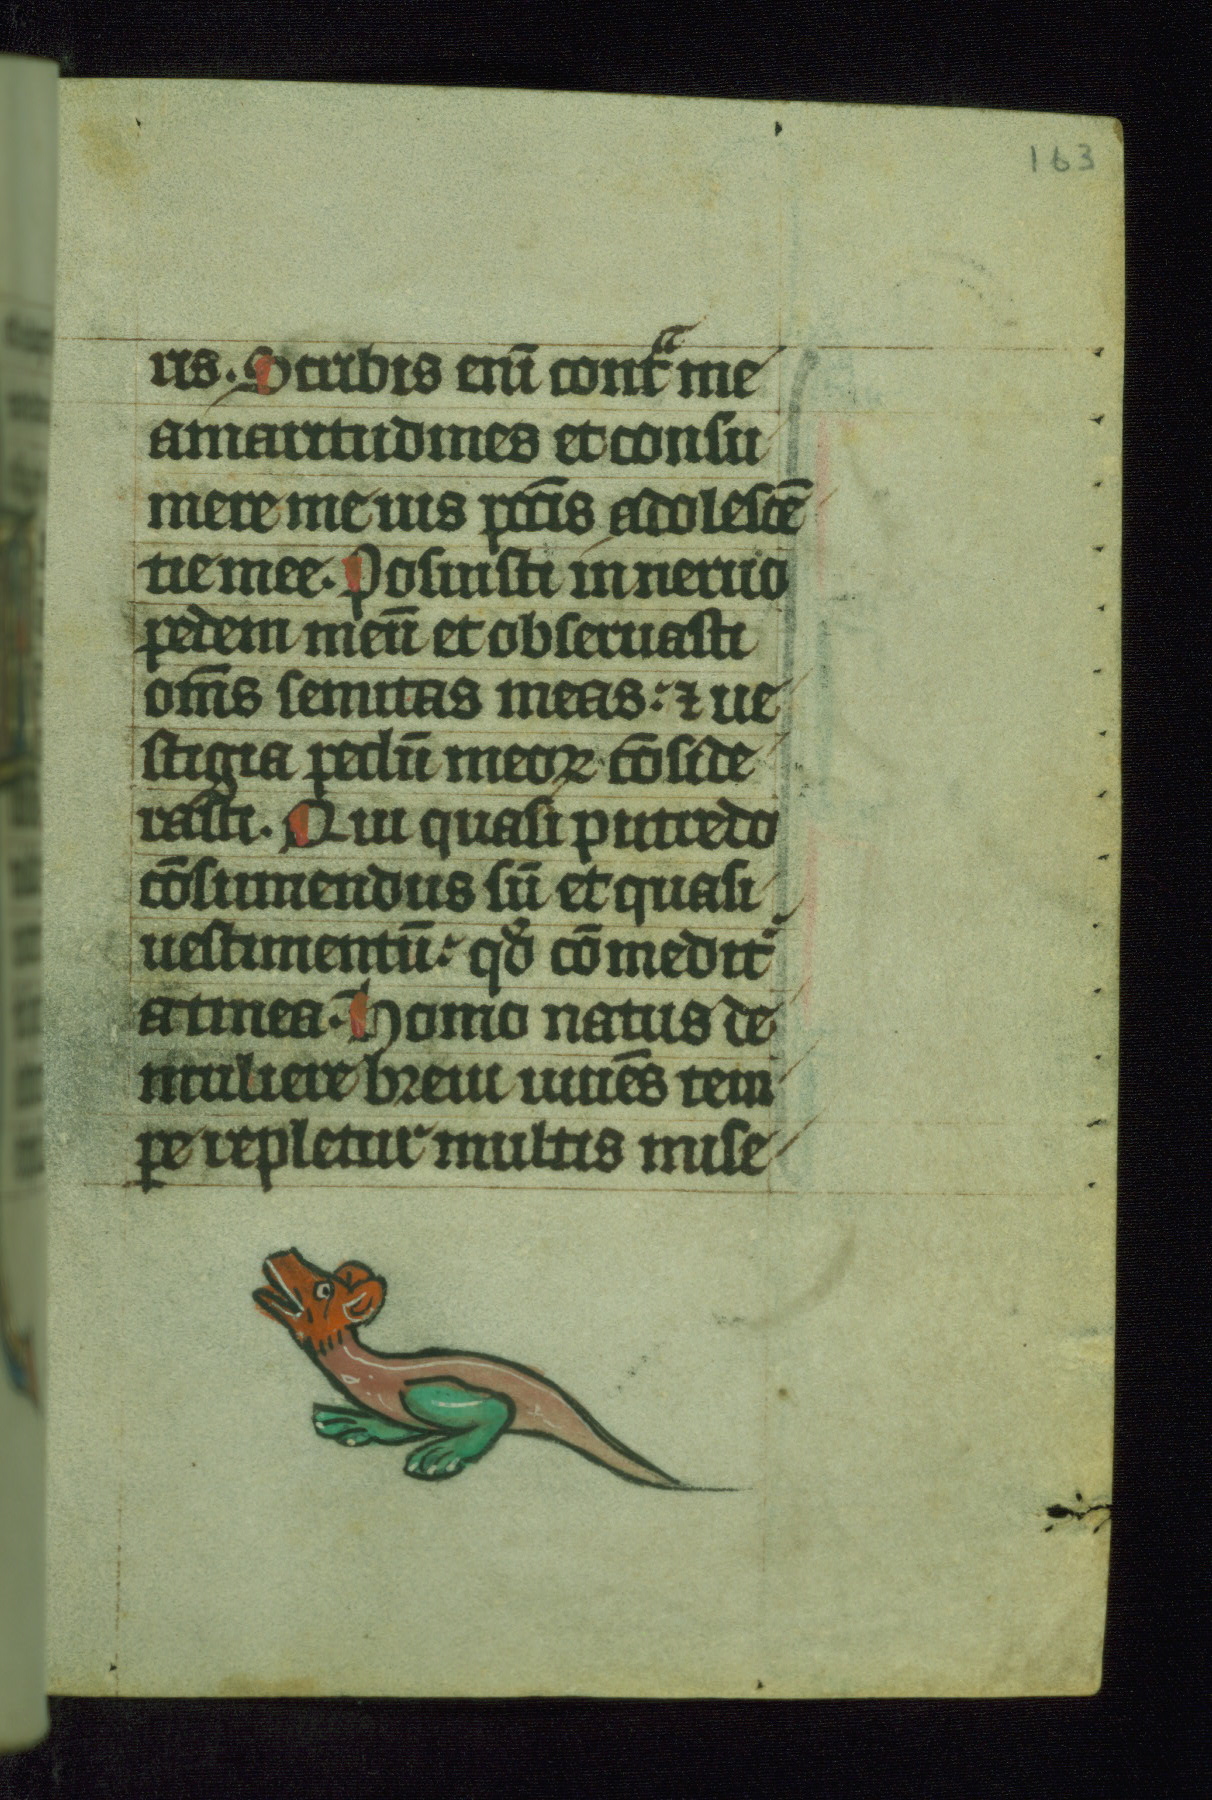 163
ris. Scribis enī contᵃ me
amaritudines et consu
mere me uis pctīs adolescē
tie mee. Posuisti in neruo
pedem meū et obseruasti
oms̄ semitas meas: ⁊ ue
stigia pedū meoꝝ cōside
rasti. Qui quasi putredo
cōsumendus sū et quasi
uestimentū: qd̄ cōmedit᷑
a tinea. Homo natus de
muliere breui uiuēs tem
pe repletur multis mise